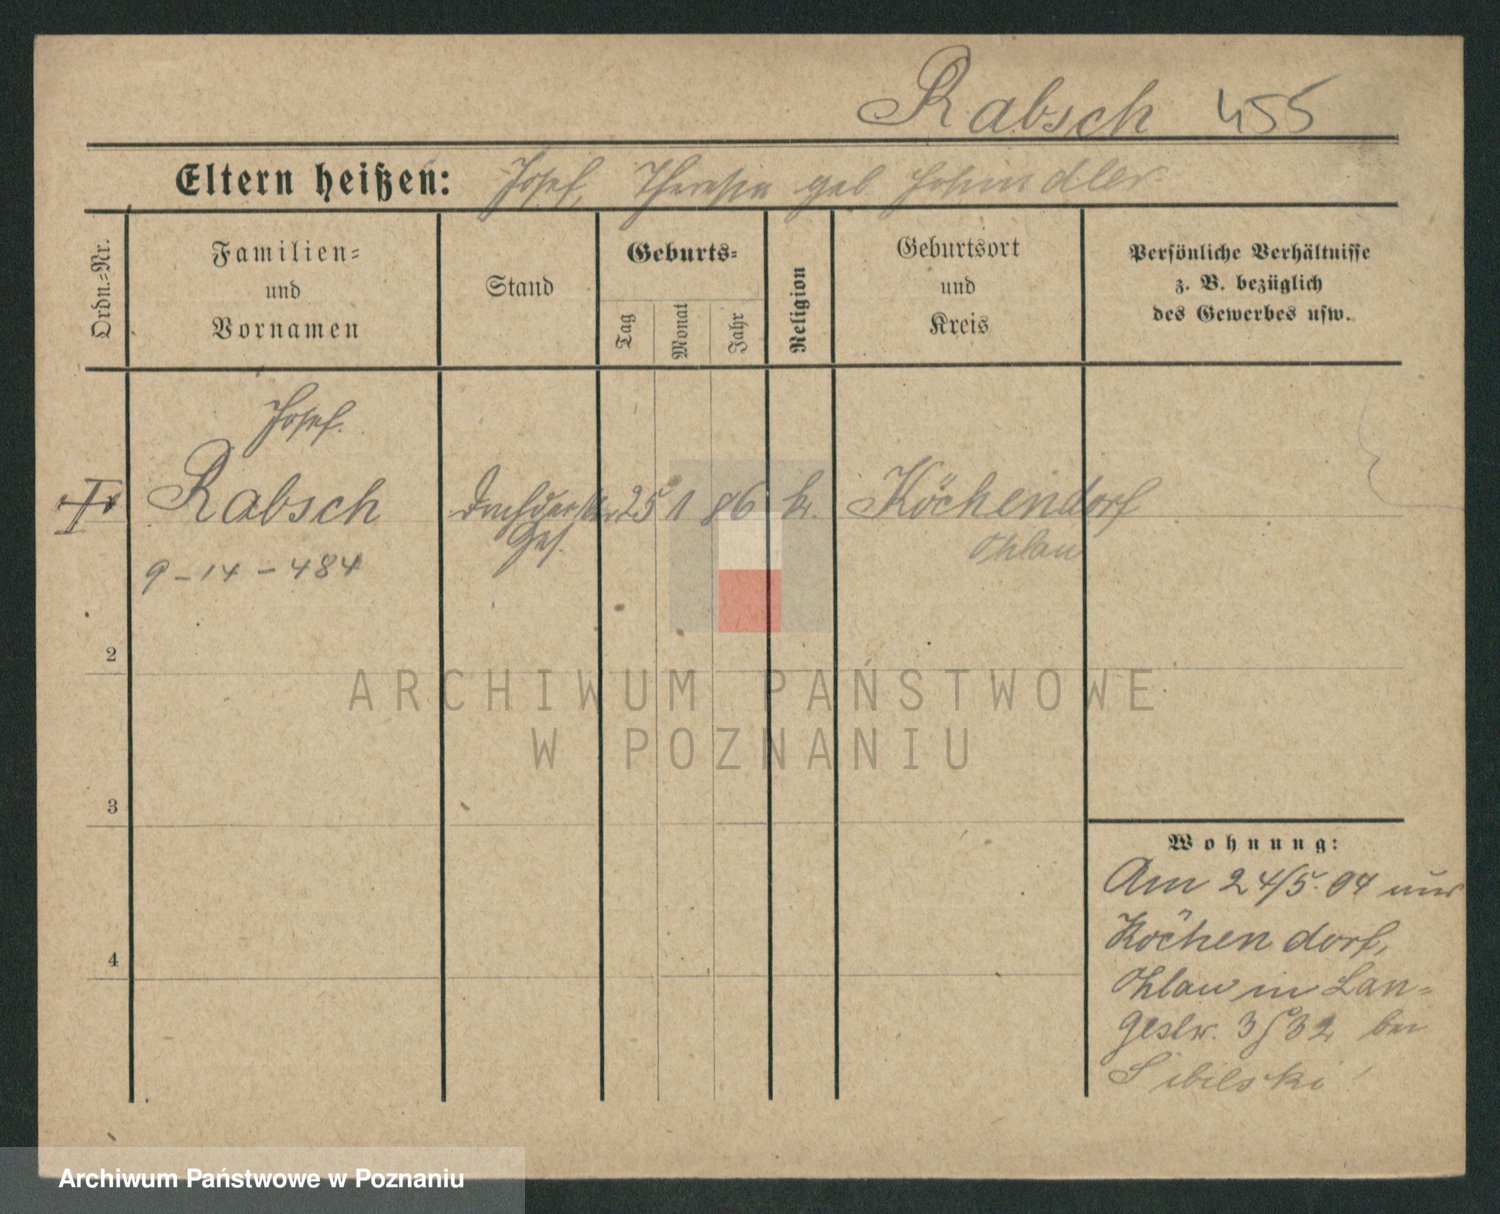 Rabsch 455
Eltern heißen: Josef, Theresia geb. Schindler
Ordn.-Nr.
Familien-
und
Vornamen
Stand
Geburts-
Tag
Monat
Jahr
Religion
Geburtsort
und
Kreis
Persönliche Verhältnisse
z. B. bezüglich
des Gewerbes usw.
Josef.
Rabsch
Ges.
25 1 86 k.
Köchendorf
Ohlau
9-14-484
2
3
4
Wohnung:
Am 24/5. 04 aus
Köchendorf,
Ohlau in Lan-
Geslr. 3 32 bei
Sibilski
ARCHIWUM PAŃSTWOWE
W POZNANIU
Archiwum Państwowe w Poznaniu